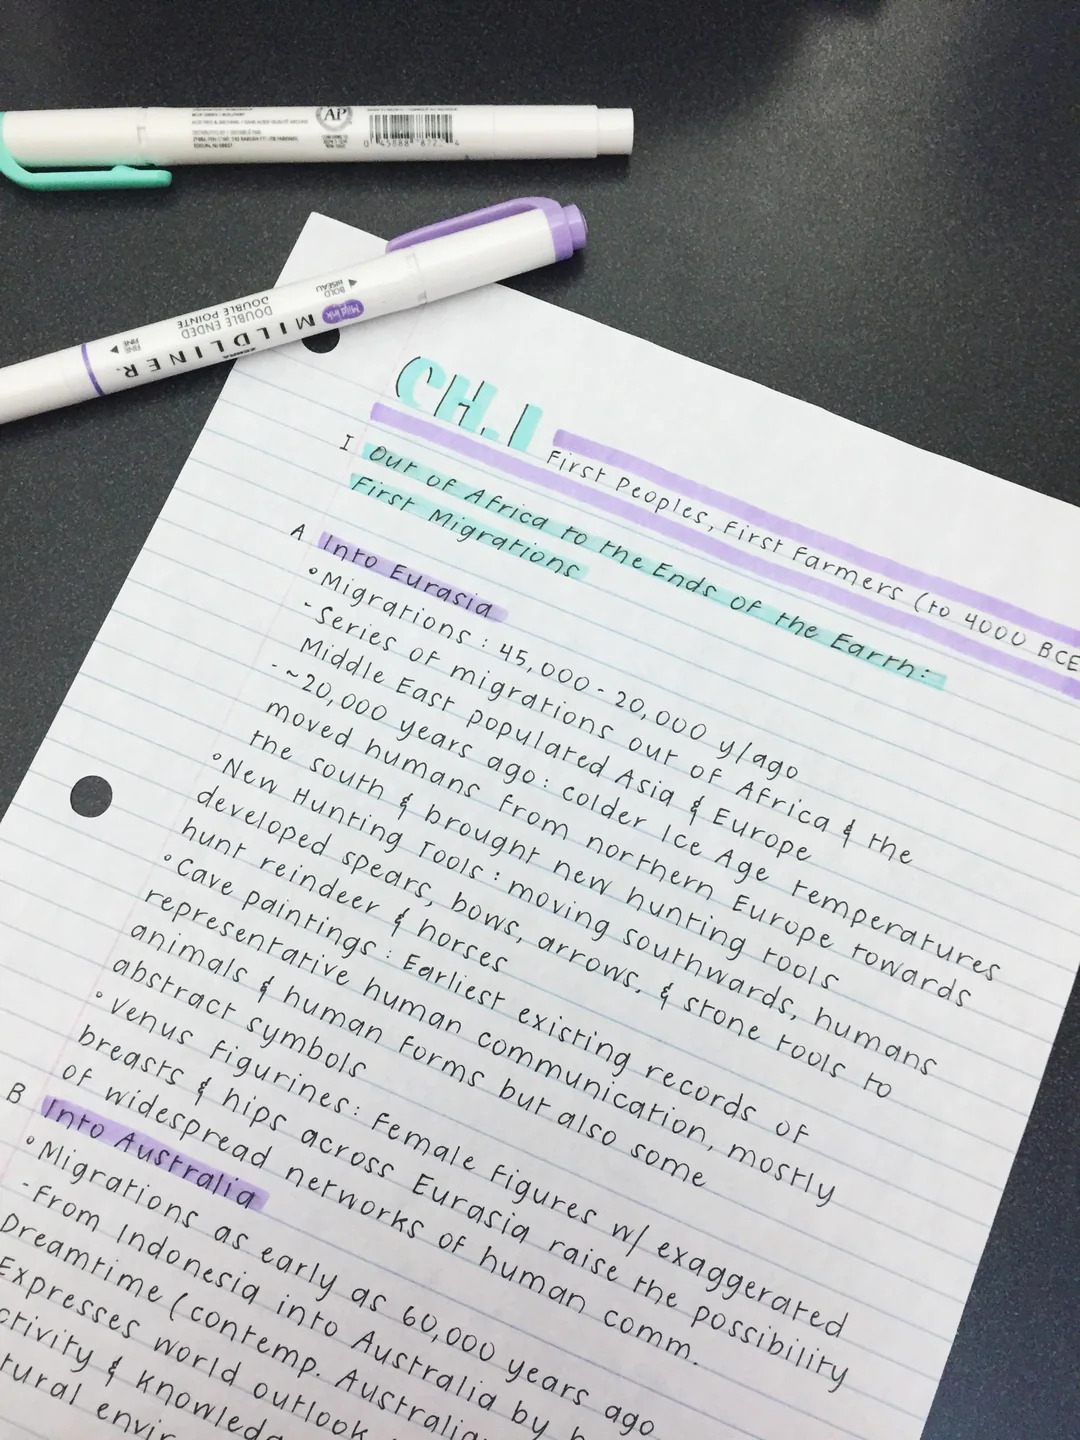 AP
0 45888
MILDLINER
ZEBRA
Mild Ink
DOUBLE ENDED
DOUBLE POINTE
BOLD
BISEAU
FINE
FINE
CH.1
First Peoples, First Farmers (to 4000 BCE
I Out of Africa to the Ends of the Earth:
First Migrations
A Into Eurasia
°Migrations: 45,000-20,000 y/ago
-Series of migrations out of Africa & the
Middle East populated Asia & Europe
-~20,000 years ago: colder Ice Age temperatures
moved humans from northern Europe towards
the south & brought new hunting tools
°New Hunting Tools: moving southwards, humans
developed spears, bows, arrows, & stone tools to
hunt reindeer & horses
°Cave paintings: Earliest existing records of
representative human communication, mostly
animals & human forms but also some
abstract symbols
°Venus figurines: Female figures w/ exaggerated
breasts & hips across Eurasia raise the possibility
of widespread networks of human comm.
B Into Australia
°Migrations as early as 60,000 years ago
-From Indonesia into Australia by
Dreamtime (contemp.
Expresses world outlook
&